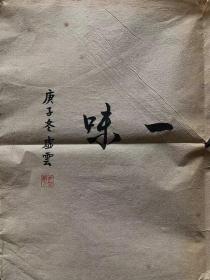 一味
庚子冬虛雲